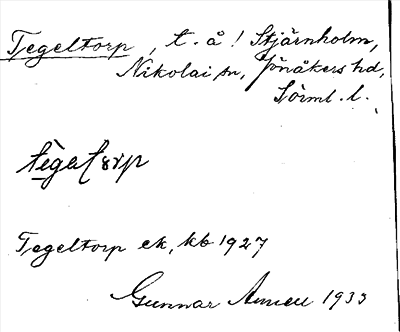 Tegeltorp, t. å! Stjärnholm,
Nikolai sn, Jönåkers hd,
Sörml. l.
Tegeltorp ek, kb 1927
Gunnar 1933